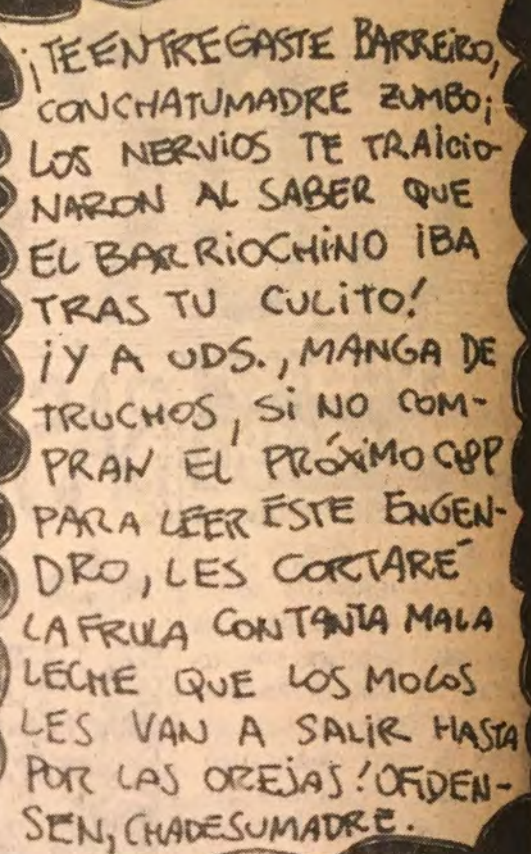 ¡TE ENTREGASTE BARREIRO,
CONCHATUMADRE ZUMBO;
LOS NERVIOS TE TRAICIO-
NARON AL SABER QUE
EL BARRIOCHINO IBA
TRAS TU CULITO!
¡Y A UDS., MANGA DE
TRUCHOS, SI NO COM-
PRAN EL PRÓXIMO C&P
PARA LEER ESTE ENGEN-
DRO, LES CORTARÉ
LA FRULA CON TANTA MALA
LECHE QUE LOS MOCOS
LES VAN A SALIR HASTA
POR LAS OREJAS! OFIDEN-
SEN, CHADESUMADRE.